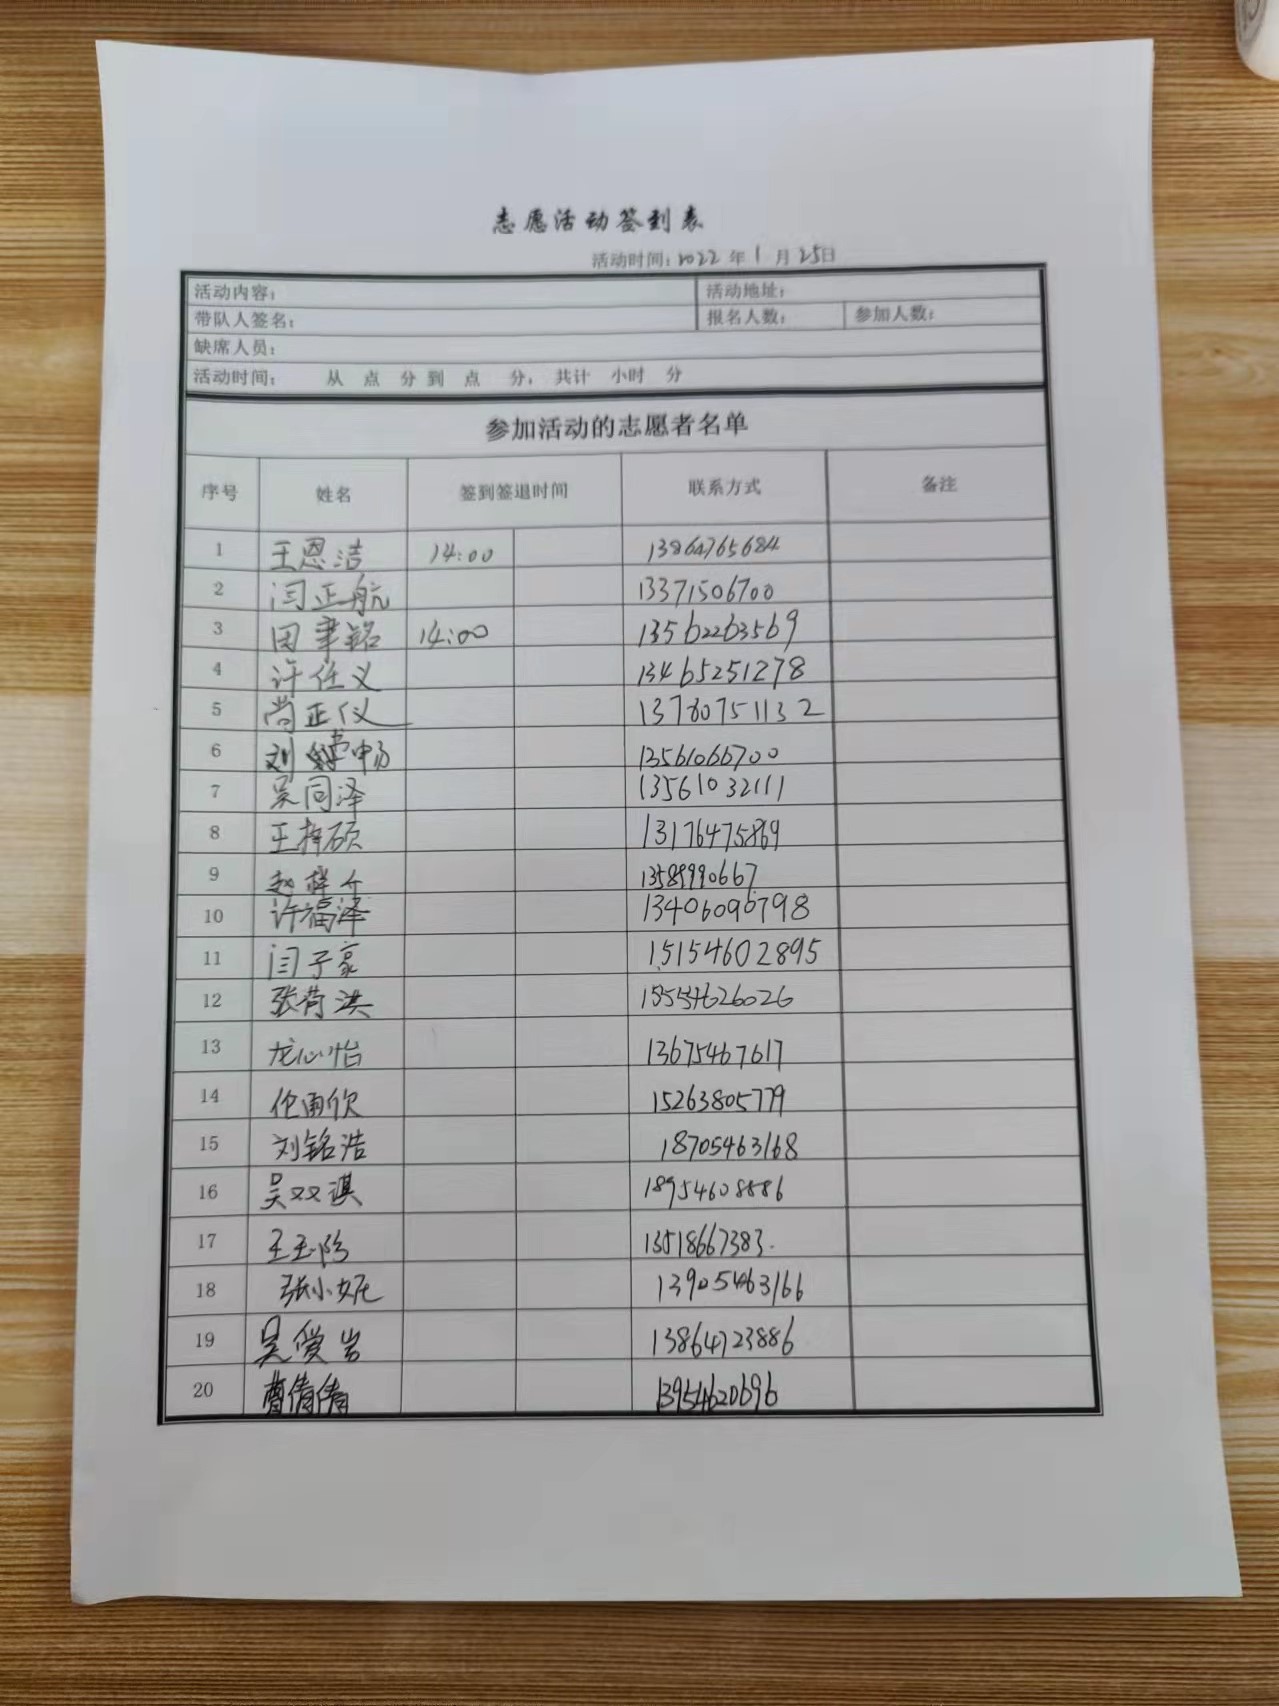 志愿活动签到表
活动时间：2022年1月25日
活动内容： 活动地址：
带队人签名： 报名人数： 参加人数：
缺席人员：
活动时间： 从 点 分 到 点 分，共计 小时 分
参加活动的志愿者名单
序号 姓名 签到签退时间 联系方式 备注
1 王恩洁 14:00 13864765684
2 闫正航 13371506700
3 田聿铭 14:00 13562263569
4 许任义 13465251278
5 尚正仪 13780751132
6 刘 畅 13561066700
7 吴同泽 13561032111
8 王梓硕 13176475869
9 赵梓 13589990667
10 许福泽 13406096798
11 闫子豪 15154602895
12 张荷洪
13 龙心怡 13675467617
14 雨欣 15263805779
15 刘铭浩 18705463168
16 吴双淇 18954608886
17 王玉 13518667383
18 张小妮 13905463166
19 吴爱岩 13864723886
20 曹倩倩 13954620696